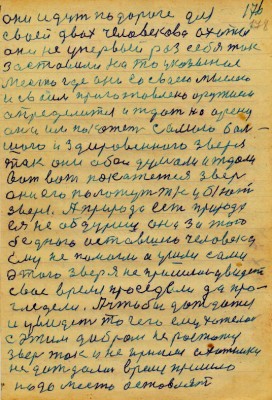 они идут по дороге для
своей двух человекова охотки
они не упервый раз себя так
заставили на то указанное
место где они со своею мыслию
и своим приготовлено оружием
определится и ждать на арену
она им покажет самого бол-
шого и здоровенного зверя
так они оба думали и ждали
вот вот покажется зверь
они его положут т к и бьют
зверя. А природа есть природа
ея не обдуриш она за того
бедного оставшись человека
ему не помогли а ушли сами
этого зверя не пришлось увидеть
свое время просидели да про-
гледели. А чтобы дождать
и увидеть то чего ему хотелося
с этим добром не
зверь так и не пришел охотники
не дождали время пришло
надо место оставлят